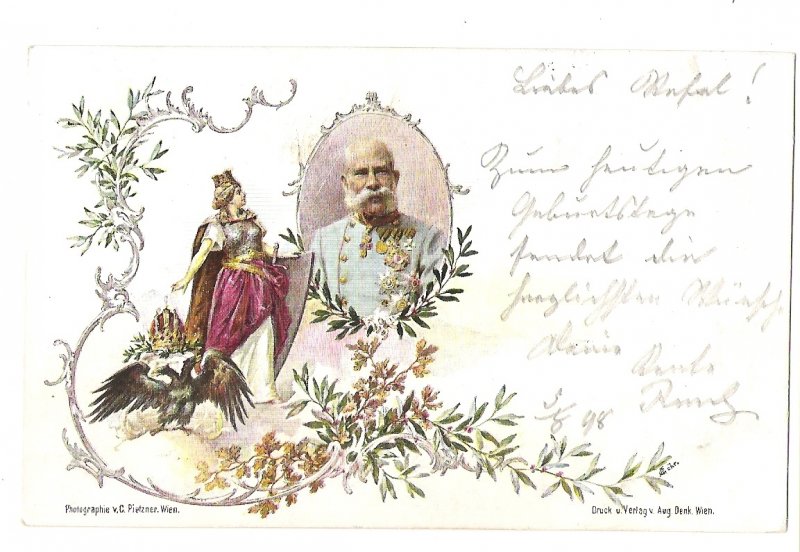 Liebes Resal!
Zum heutigen
Geburtstage
sendet die
herzlichsten Wünsche
Deine
98
Photographie v. C. Pietzner. Wien.
Druck u. Verlag v. Aug. Denk. Wien.